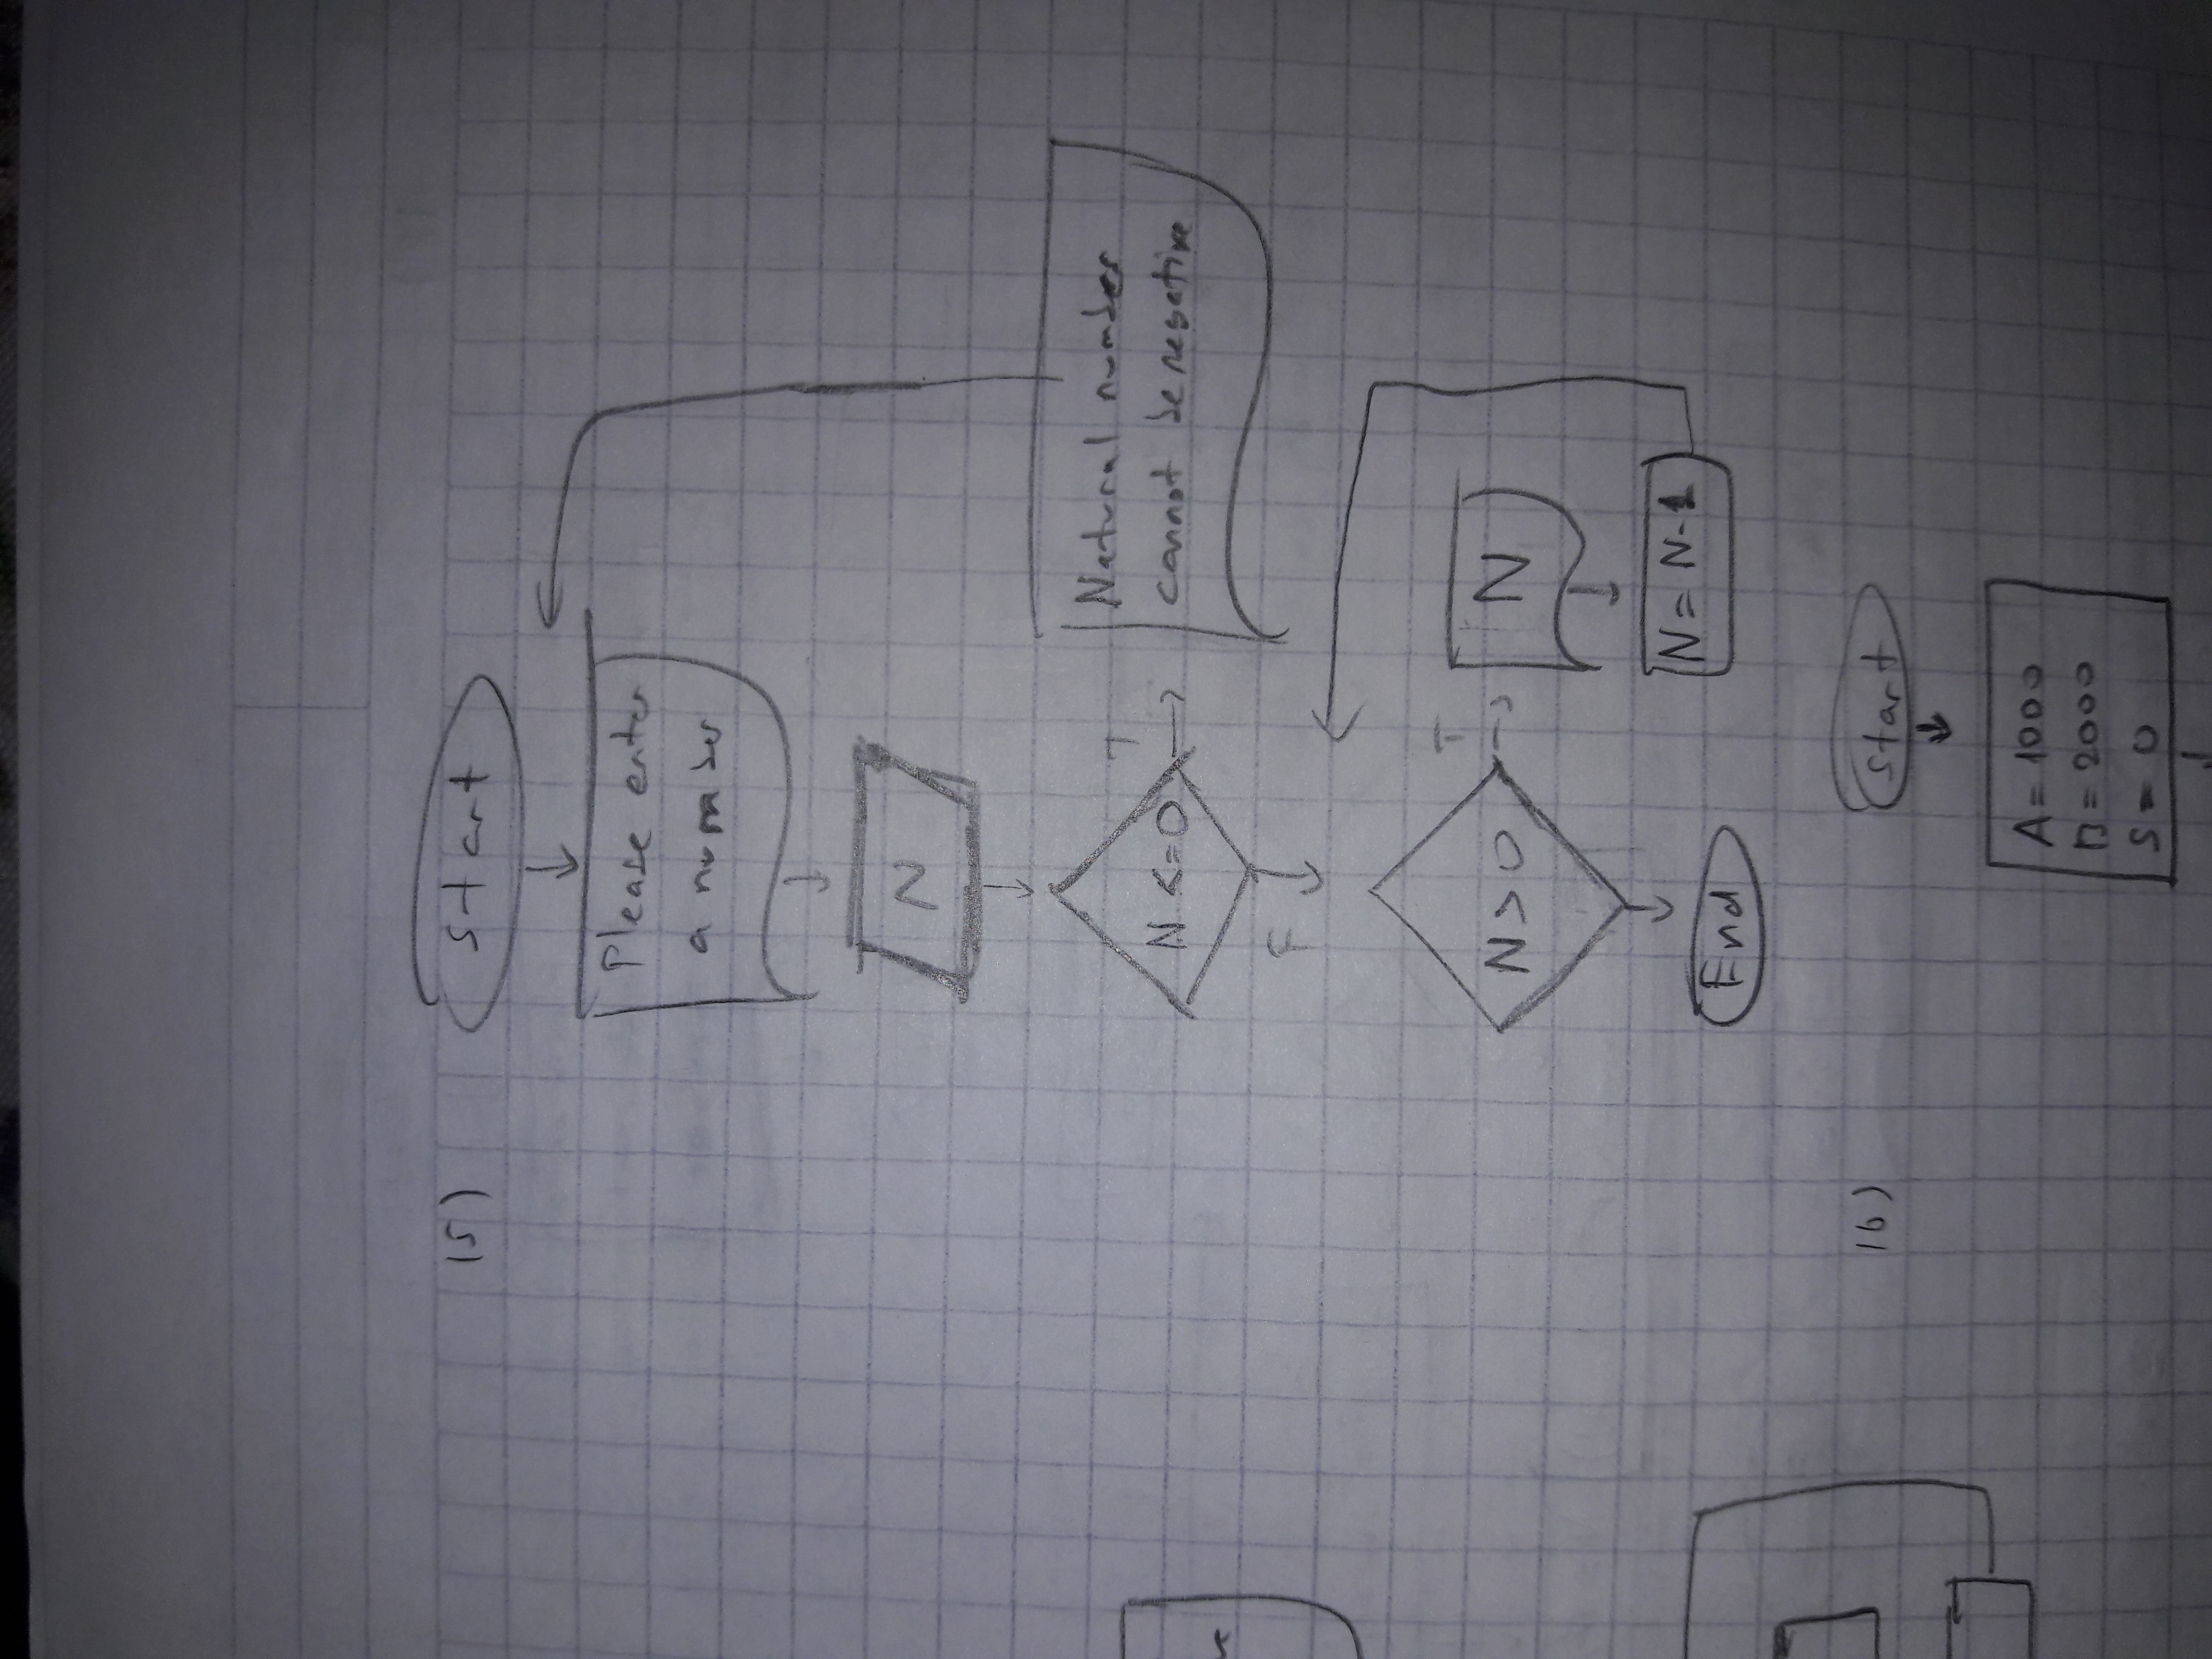 15)
Start
Please enter
a number
N
N <= 0
T
Natural number
cannot be negative
F
N > 0
T
N
N = N-1
End
16)
Start
A = 1000
B = 2000
S = 0